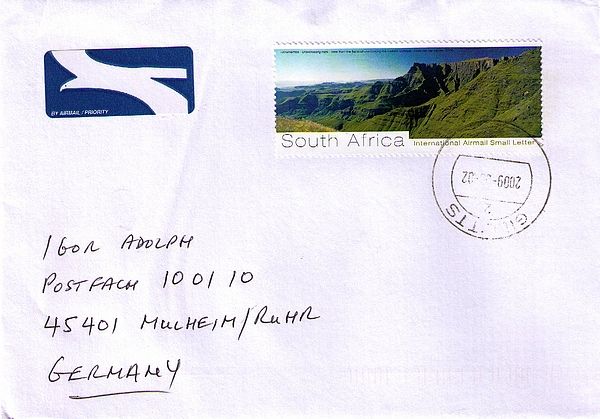 BY AIRMAIL / PRIORITY
South Africa
International Airmail Small Letter
GILLITTS
2
IGOR ADOLPH
POSTFACH 100110
45401 MULHEIM/RUHR
GERMANY